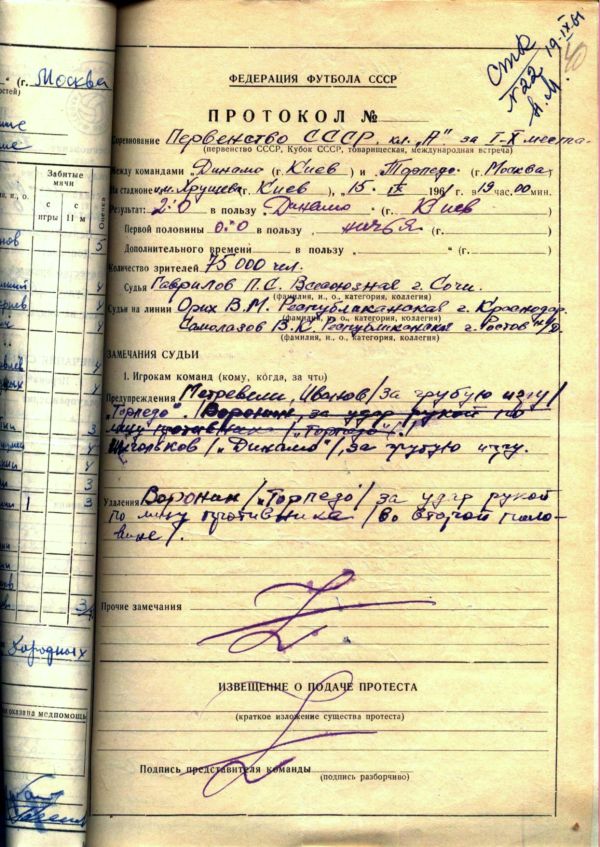 СТК
№22
19·IX 61
40
Н.М.
ФЕДЕРАЦИЯ ФУТБОЛА СССР
ПРОТОКОЛ №
Соревнование Первенство СССР кл. „А" за I-X места
(первенство СССР, Кубок СССР, товарищеская, международная встреча)
Между командами „Динамо" (г. Киев) и „Торпедо" (г. Москва)
На стадионе им. Хрущева (г. Киев), „15" IX 1961 г. в 19 час. 00 мин.
Результат: 2:0 в пользу „Динамо" (г. Киев)
Первой половины 0:0 в пользу ничья (г. )
Дополнительного времени в пользу „ " (г. )
Количество зрителей 75 000 чел.
Судья Гаврилов П.С. Всесоюзная г. Сочи.
(фамилия, и., о., категория, коллегия)
Судьи на линии Орих В.М. Республиканская г. Краснодар
(фамилия, и., о., категория, коллегия)
Самолазов В.К. Республиканская г. Ростов н/Д.
(фамилия, и., о., категория, коллегия)
ЗАМЕЧАНИЯ СУДЬИ
1. Игрокам команд (кому, когда, за что)
Предупреждения Метревели, Иванов /за грубую игру/
„Торпедо". /Воронин, за удар рукой по
лицу противника / „Торпедо"/.
/„Динамо"/, за грубую игру.
Удаления Воронин / „Торпедо" / за удар рукой
по лицу противника /во второй поло-
вине/.
Прочие замечания
ИЗВЕЩЕНИЕ О ПОДАЧЕ ПРОТЕСТА
(краткое изложение существа протеста)
Подпись представителя команды
(подпись разборчиво)
" (г. Москва
Забитые
мячи
с игры
с 11 м
Оценка
5
4
4
4
4
4
3
4
4
1 3
3/4
медпомощь